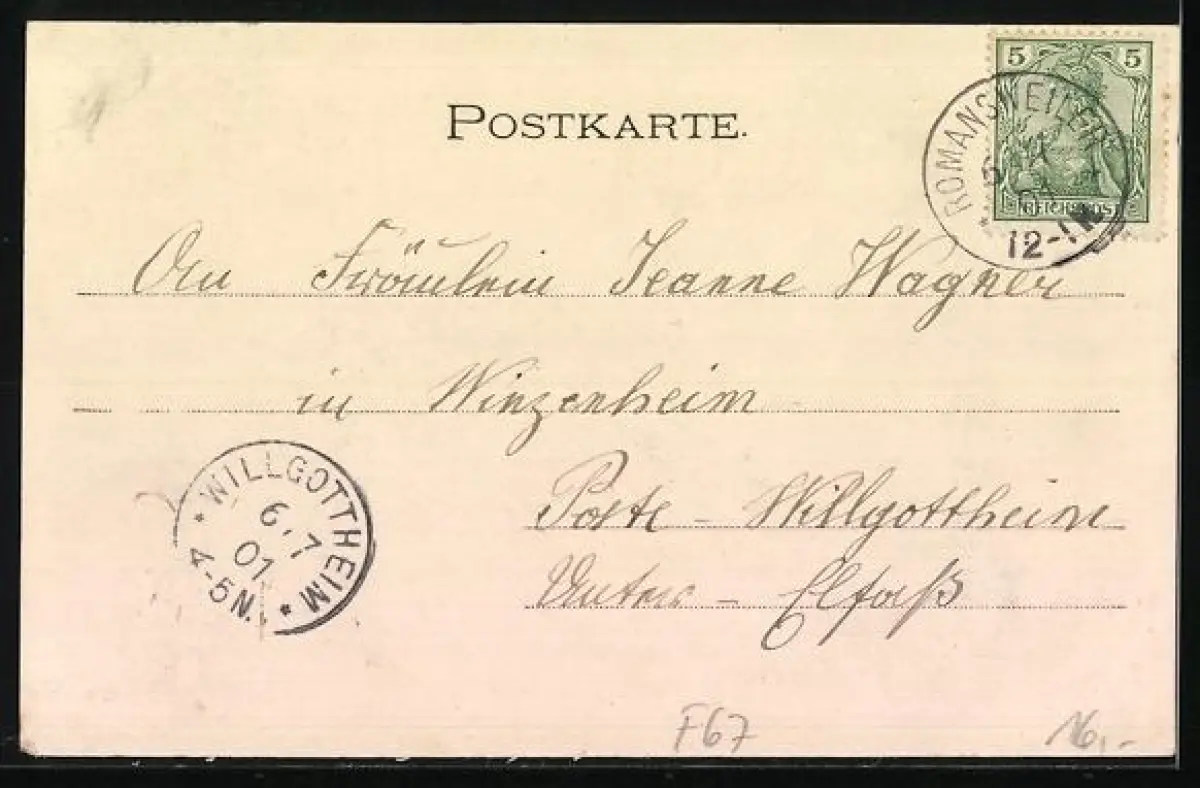 5 5
REICHSPOST
ROMANSWEILER
12-1N
POSTKARTE.
An Fräulein Jeanne Wagner
in Winzenheim
Poste - Willgottheim
Unter - Elsaß
* WILLGOTTHEIM *
6.7
01
4-5N.
F67
16,-